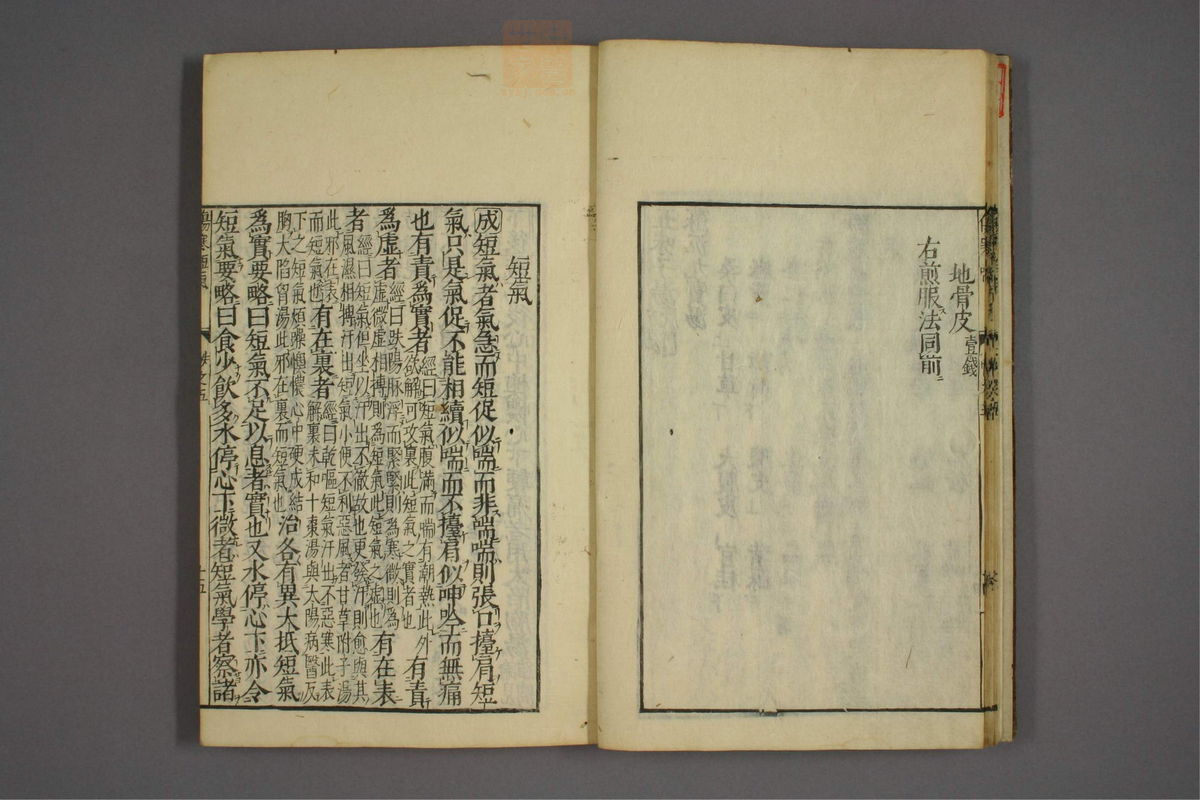 地骨皮壹錢
右煎服法同前
短氣
成短氣者氣急而短促似喘而非喘喘則張口擡肩短
氣只是氣促不能相續似喘而不擡肩似呻吟而無痛
也有責爲實者經曰短氣腹滿而喘有潮熱此外
欲解可攻裏此短氣之實者也有責
爲虛者經曰趺陽脉浮而緊緊則爲寒微則爲
虛微虛相搏則爲短氣此短氣之虛也有在表
者經曰短氣但坐以汗出不徹故也更發汗則愈與其
風濕相摶汗出短氣小便不利惡風者甘草附子湯
此邪在表
而短氣也有在裏者經曰乾嘔短氣汗出不惡寒此表
解裏未和十棗湯與太陽病醫反
下之短氣煩躁懊憹心中硬成結
胸大陷胷湯此邪在裏而短氣也治各有異大抵短氣
爲實要略曰短氣不足以息者實也又水停心下亦令
短氣要略曰食少飮多水停心下微者短氣學者察諸
傷寒
十五